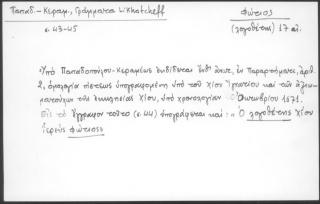 Παπαδ.-Κεραμ., Γράμματα Likhatcheff
σ. 43-45
Φώτιος
(λογοθέτης) 17 αἰ.
Ὑπό Παπαδοπούλου-Κεραμέως ἐκδίδεται ἐν Παραρτήματι, ἀριθ.
2, ὁμολογία πίστεως ὑπογραφομένη ὑπό τοῦ Χίου Ἰγνατίου καί τῶν
τῆς ἐκκλησίας Χίου, ὑπό χρονολογίαν Ὀκτωβρίου 1671.
Εἰς τό ἔγγραφον τοῦτο (σ. 44) ὑπογράφεται καί: "Ὁ λογοθέτης Χίου
ἱερεύς Φώτιος"